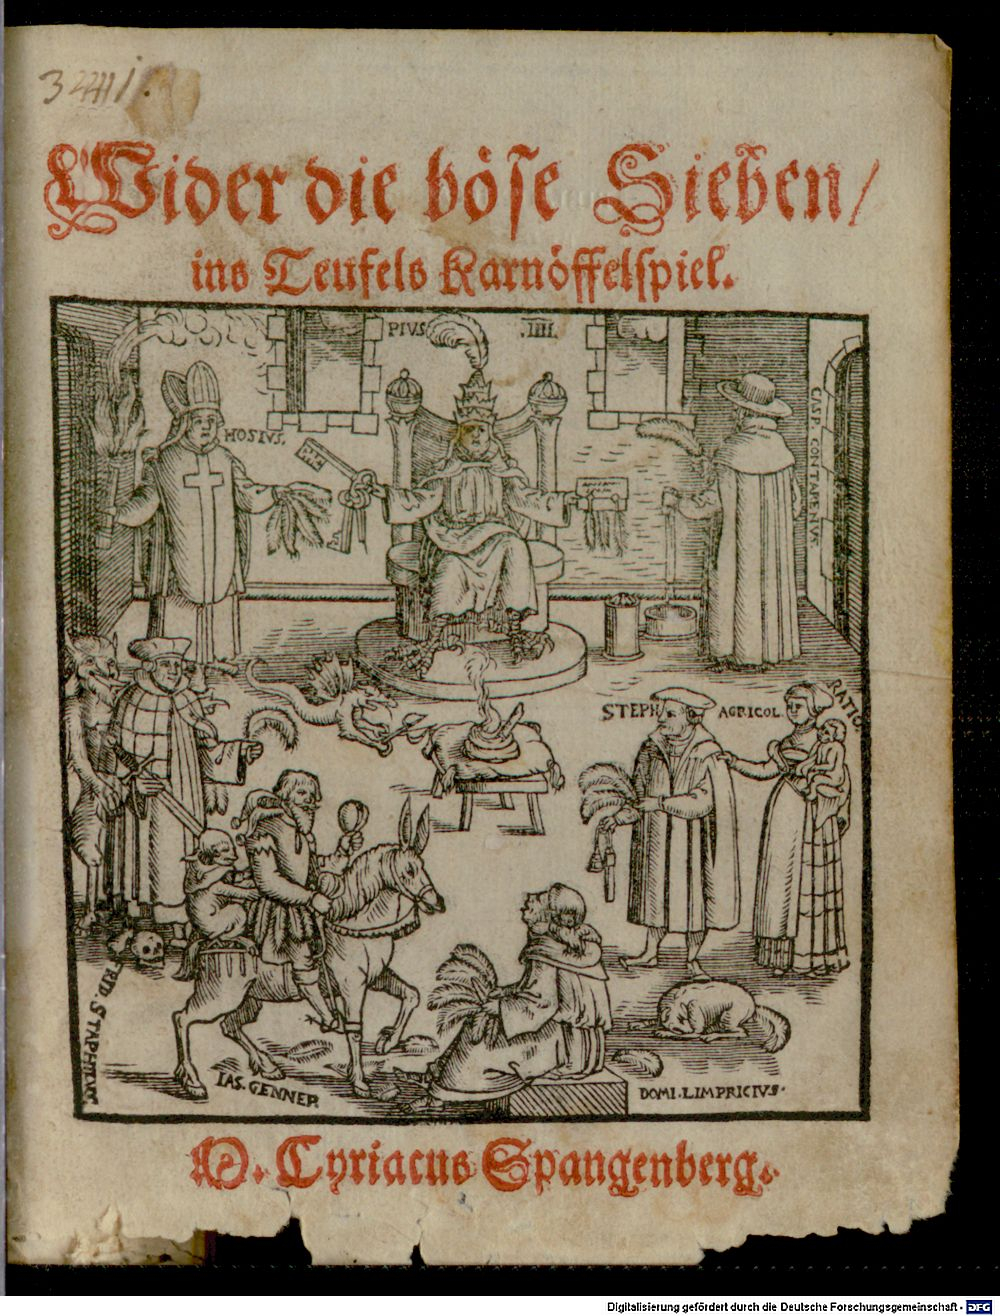 Wider die böse Sieben/
ins Teufels Karnöffelspiel.
PIVS IIII.
HOSIVS.
CASP. CONTARENVS.
STEPH AGRICOL.
RATIO
FRID. STAPHILVS
IAS. GENNER
DOMI. LIMPRICIVS.
M. Cyriacus Spangenberg.
Digitalisierung gefördert durch die Deutsche Forschungsgemeinschaft - DFG